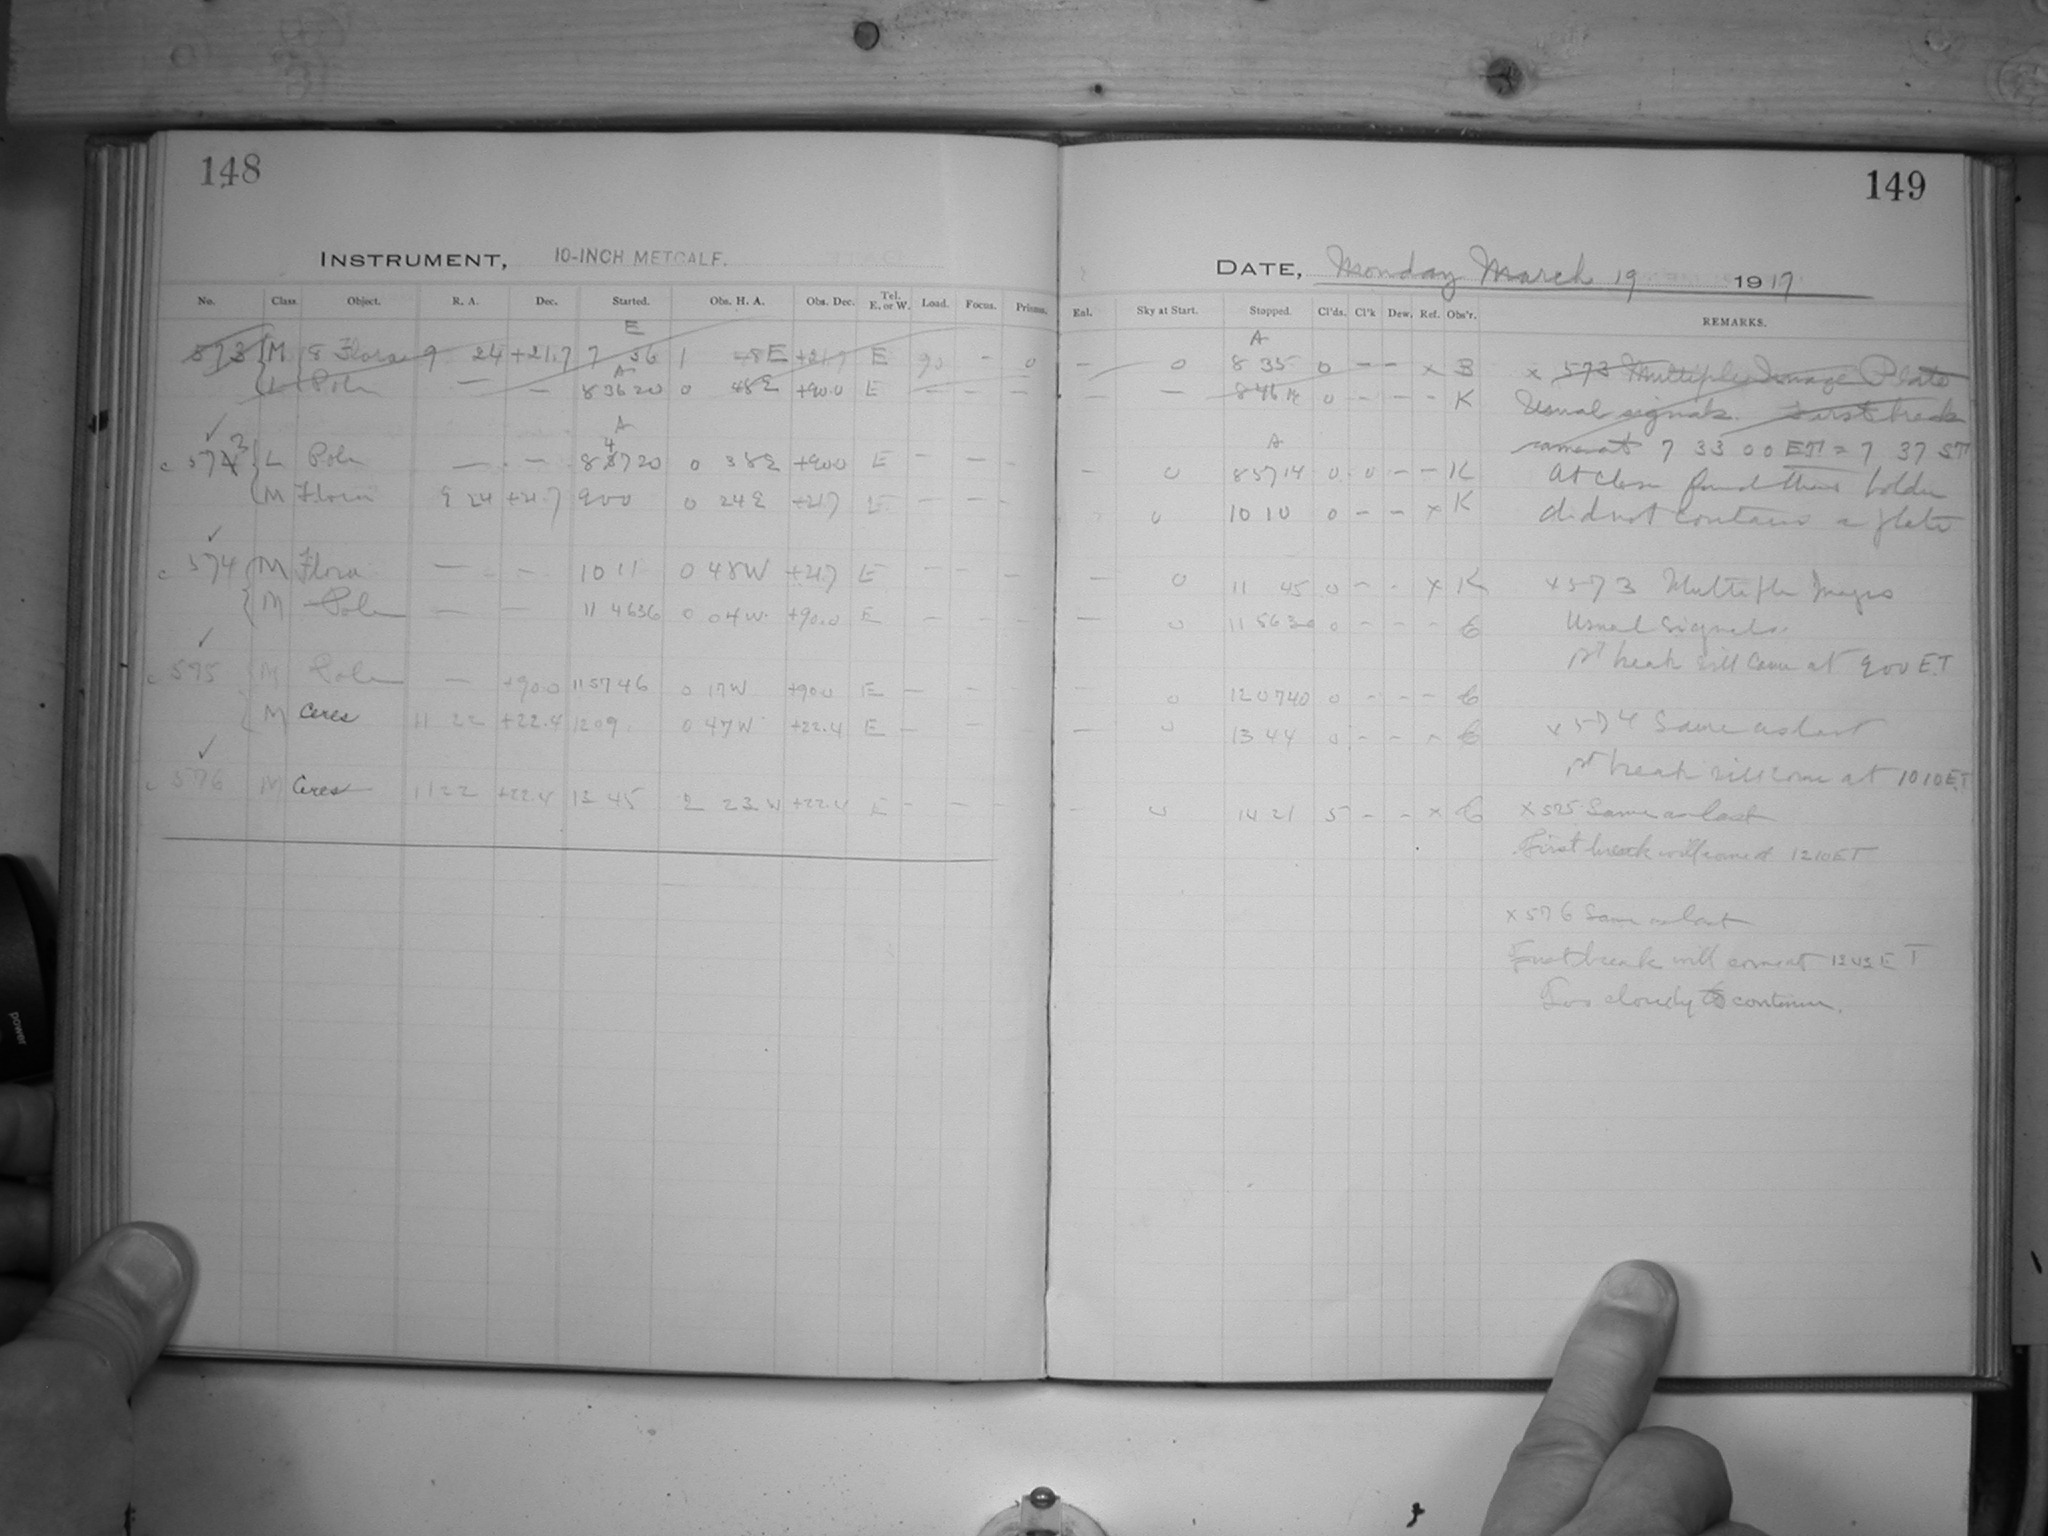 148
149
INSTRUMENT, 10-INCH METCALF.
DATE, Monday March 19 1917
No. Class. Object. R. A. Dec. Started. Obs. H. A. Obs. Dec. Tel. E. or W. Load. Focus. Prisms. Eal. Sky at Start. Stopped. Cl'ds. Cl'k Dew. Ref. Obs'r. REMARKS.
E A
573 M 8 Flora 9 24 +21.7 7 36 1 8E +21.7 E 90 - 0 - 0 8 35 0 - - x B x 573 Multiple Image Plate
A
L Pole — — 8 36 20 0 48E +90.0 E — — — — — 8 46 14 0 - - - K Usual signals. First break
A A came at 7 33 00 ET = 7 37 ST
c 573 L Pole — - — 8 4720 0 38E +900 E — - - - 0 8 57 14 0 0 - - K At close found that holder
M Flora 9 24 +21.7 900 0 24E +21.7 E - - - 0 10 10 0 - - x K did not contain a plate
c 574 M Flora — - — 10 11 0 48W +21.7 E - - - - 0 11 45 0 - - x K x 573 Multiple Images
M Pole — — 11 46 36 0 04W +90.0 E — - - — 0 11 56 36 0 - - - C Usual signals.
1st break will come at 900 E.T
c 575 M Pole — +90.0 11 57 46 0 17W +90.0 E — - - — 0 12 07 40 0 - - - C
M Ceres 11 22 +22.4 12 09 0 47W +22.4 E — - - — 0 13 44 0 - - x C x 574 Same as last
1st break will come at 10 10 E.T
c 576 M Ceres 11 22 +22.4 13 45 2 23W +22.4 E - - - - 0 14 21 5 - - x C x 575 Same as last
First break will come at 12 10 ET
x 576 Same as last
First break will come at ET
Too cloudy to continue.
power